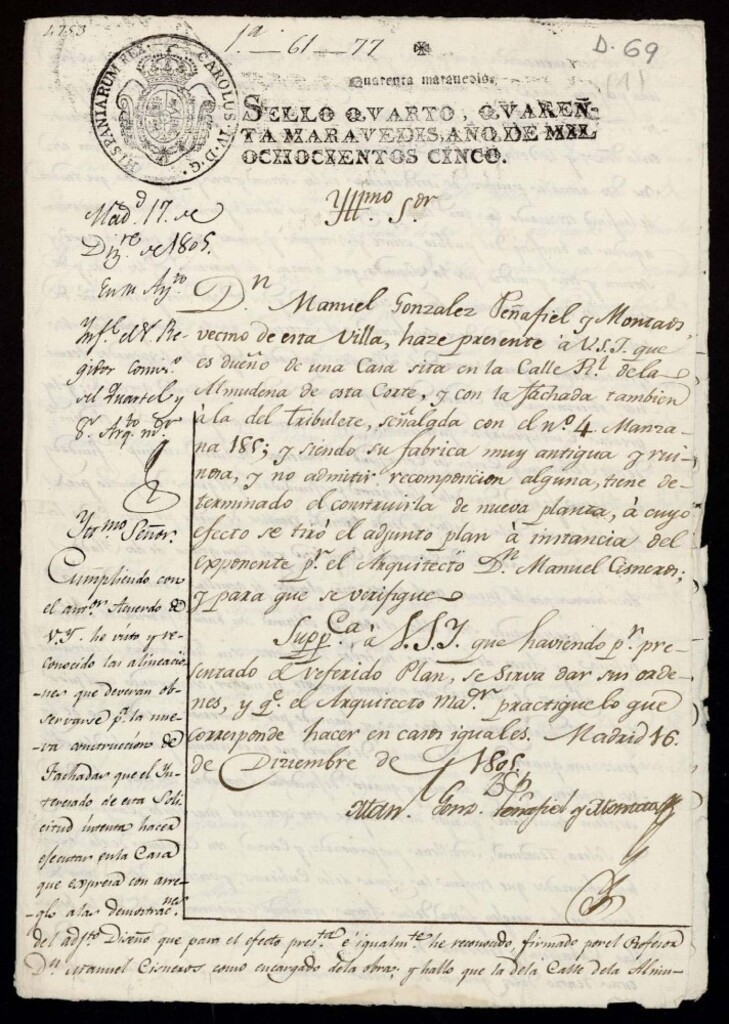 1.ª — 61 — 77
D. 69
(1)
HISPANIARUM REX. CAROLUS. IV. D. G.
Quarenta maravedis.
SELLO QVARTO, QVAREN-
TA MARAVEDIS, AÑO DE MIL
OCHOCIENTOS CINCO.
Yllmo. Sor.
Madd. 17. de
Dizre. de 1805.
En su Ayto.
Infe. el Sr. Re-
gidor Comiso.
del Quartel y
Sr. Arqto. mor.
Dn. Manuel Gonzalez Peñafiel y Montaos,
vecino de esta Villa, haze presente à V.S.I. que
es dueño de una Casa sita en la Calle Rl. de la
Almudena de esta Corte, y con la fachada tambien
à la del Tribulete, señalgda con el nº. 4. Manza-
na 185; y siendo su fabrica muy antigua y rui-
nosa, y no admitir recomposicion alguna, tiene de-
terminado el construirla de nueva planta, à cuyo
efecto se tiró el adjunto plan à instancia del
exponente pr. el Arquitecto Dn. Manuel Cisneros;
y para que se verifique
Suppca. à V.S.I. que haviendo pr. pre-
sentado el referido Plan, se sirva dar sus orde-
nes, y qe. el Arquitecto Mar. practique lo que
corresponde hacer en casos iguales. Madrid 16.
de Diziembre de 1805.
Man. Gonz. Peñafiel y
Yllmo. Señor.
Cumpliendo con
el antor. Acuerdo de
V.I. he visto y re-
conocido las alineacio-
nes que deveran ob-
servarse pa. la nue-
va construccion de
Fachadas que el In-
teresado de esta Soli-
citud intenta hacer
efecutar en la Casa
que expresa con arre-
glo a las demostracnes.
del adjto. Diseño que para el efecto presta. é igualmte. he reconocido, firmado por el Profesor
Dn. Manuel Cisneros como encargado de la obra; y hallo que la de la Calle de la Almu-